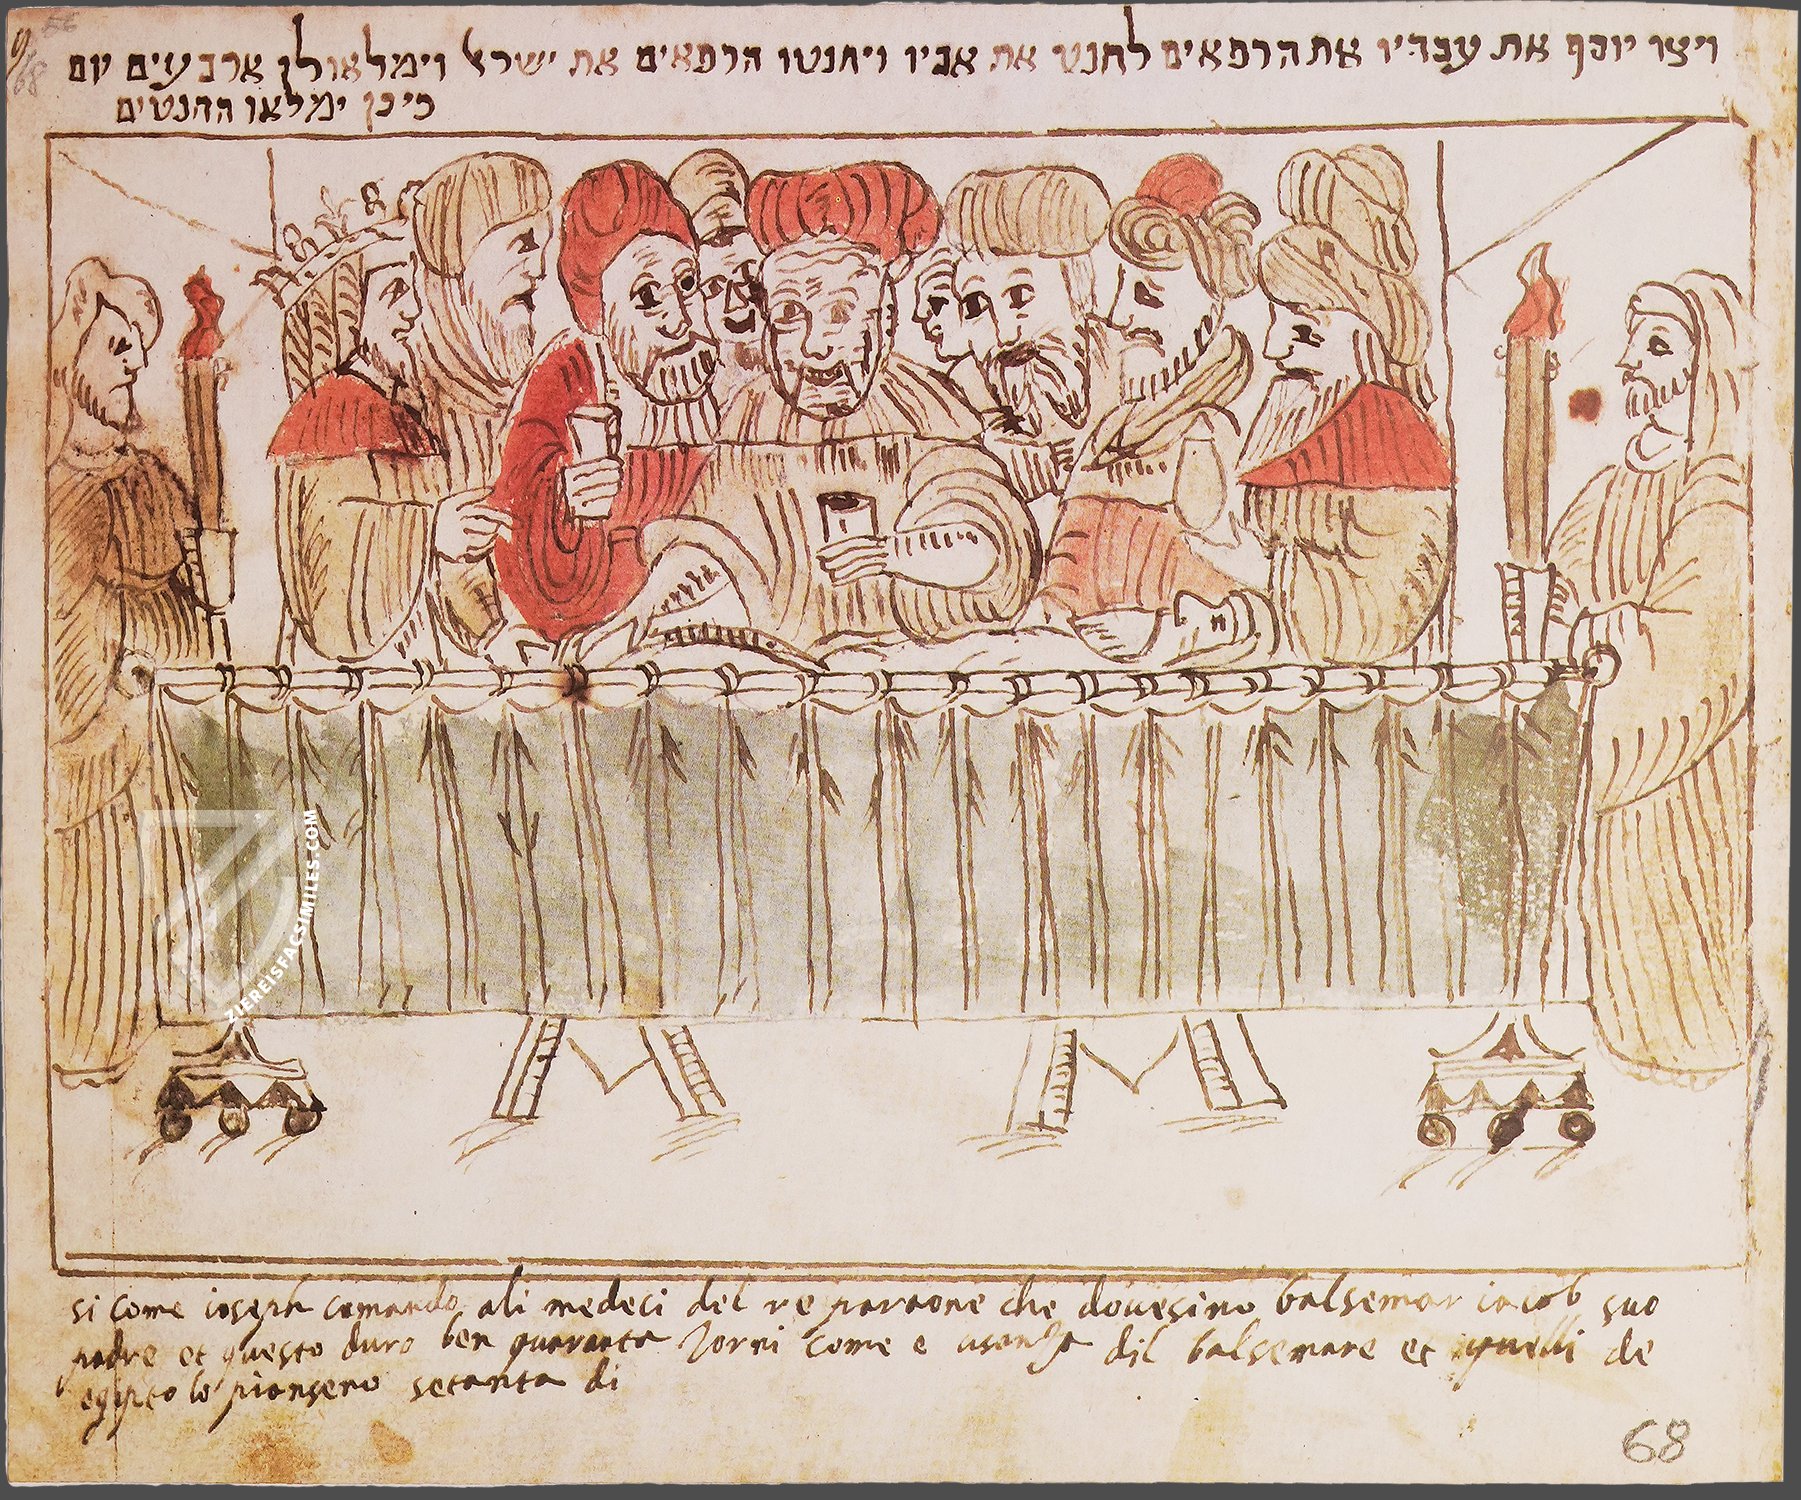 ויצו יוסף את עבדיו את הרפאים לחנט את אביו ויחנטו הרפאים את ישראל וימלאו לו ארבעים יום
כי כן ימלאו החנטים
si come ioseph comando ali medeci del re faraone che douesino balsemar iacob suo
padre et questo duro ben quaranta Jorni come e usanza dil balsemare et quelli de
egipto lo piansero setanta di
68
68
ZIEREISFACSIMILES.COM